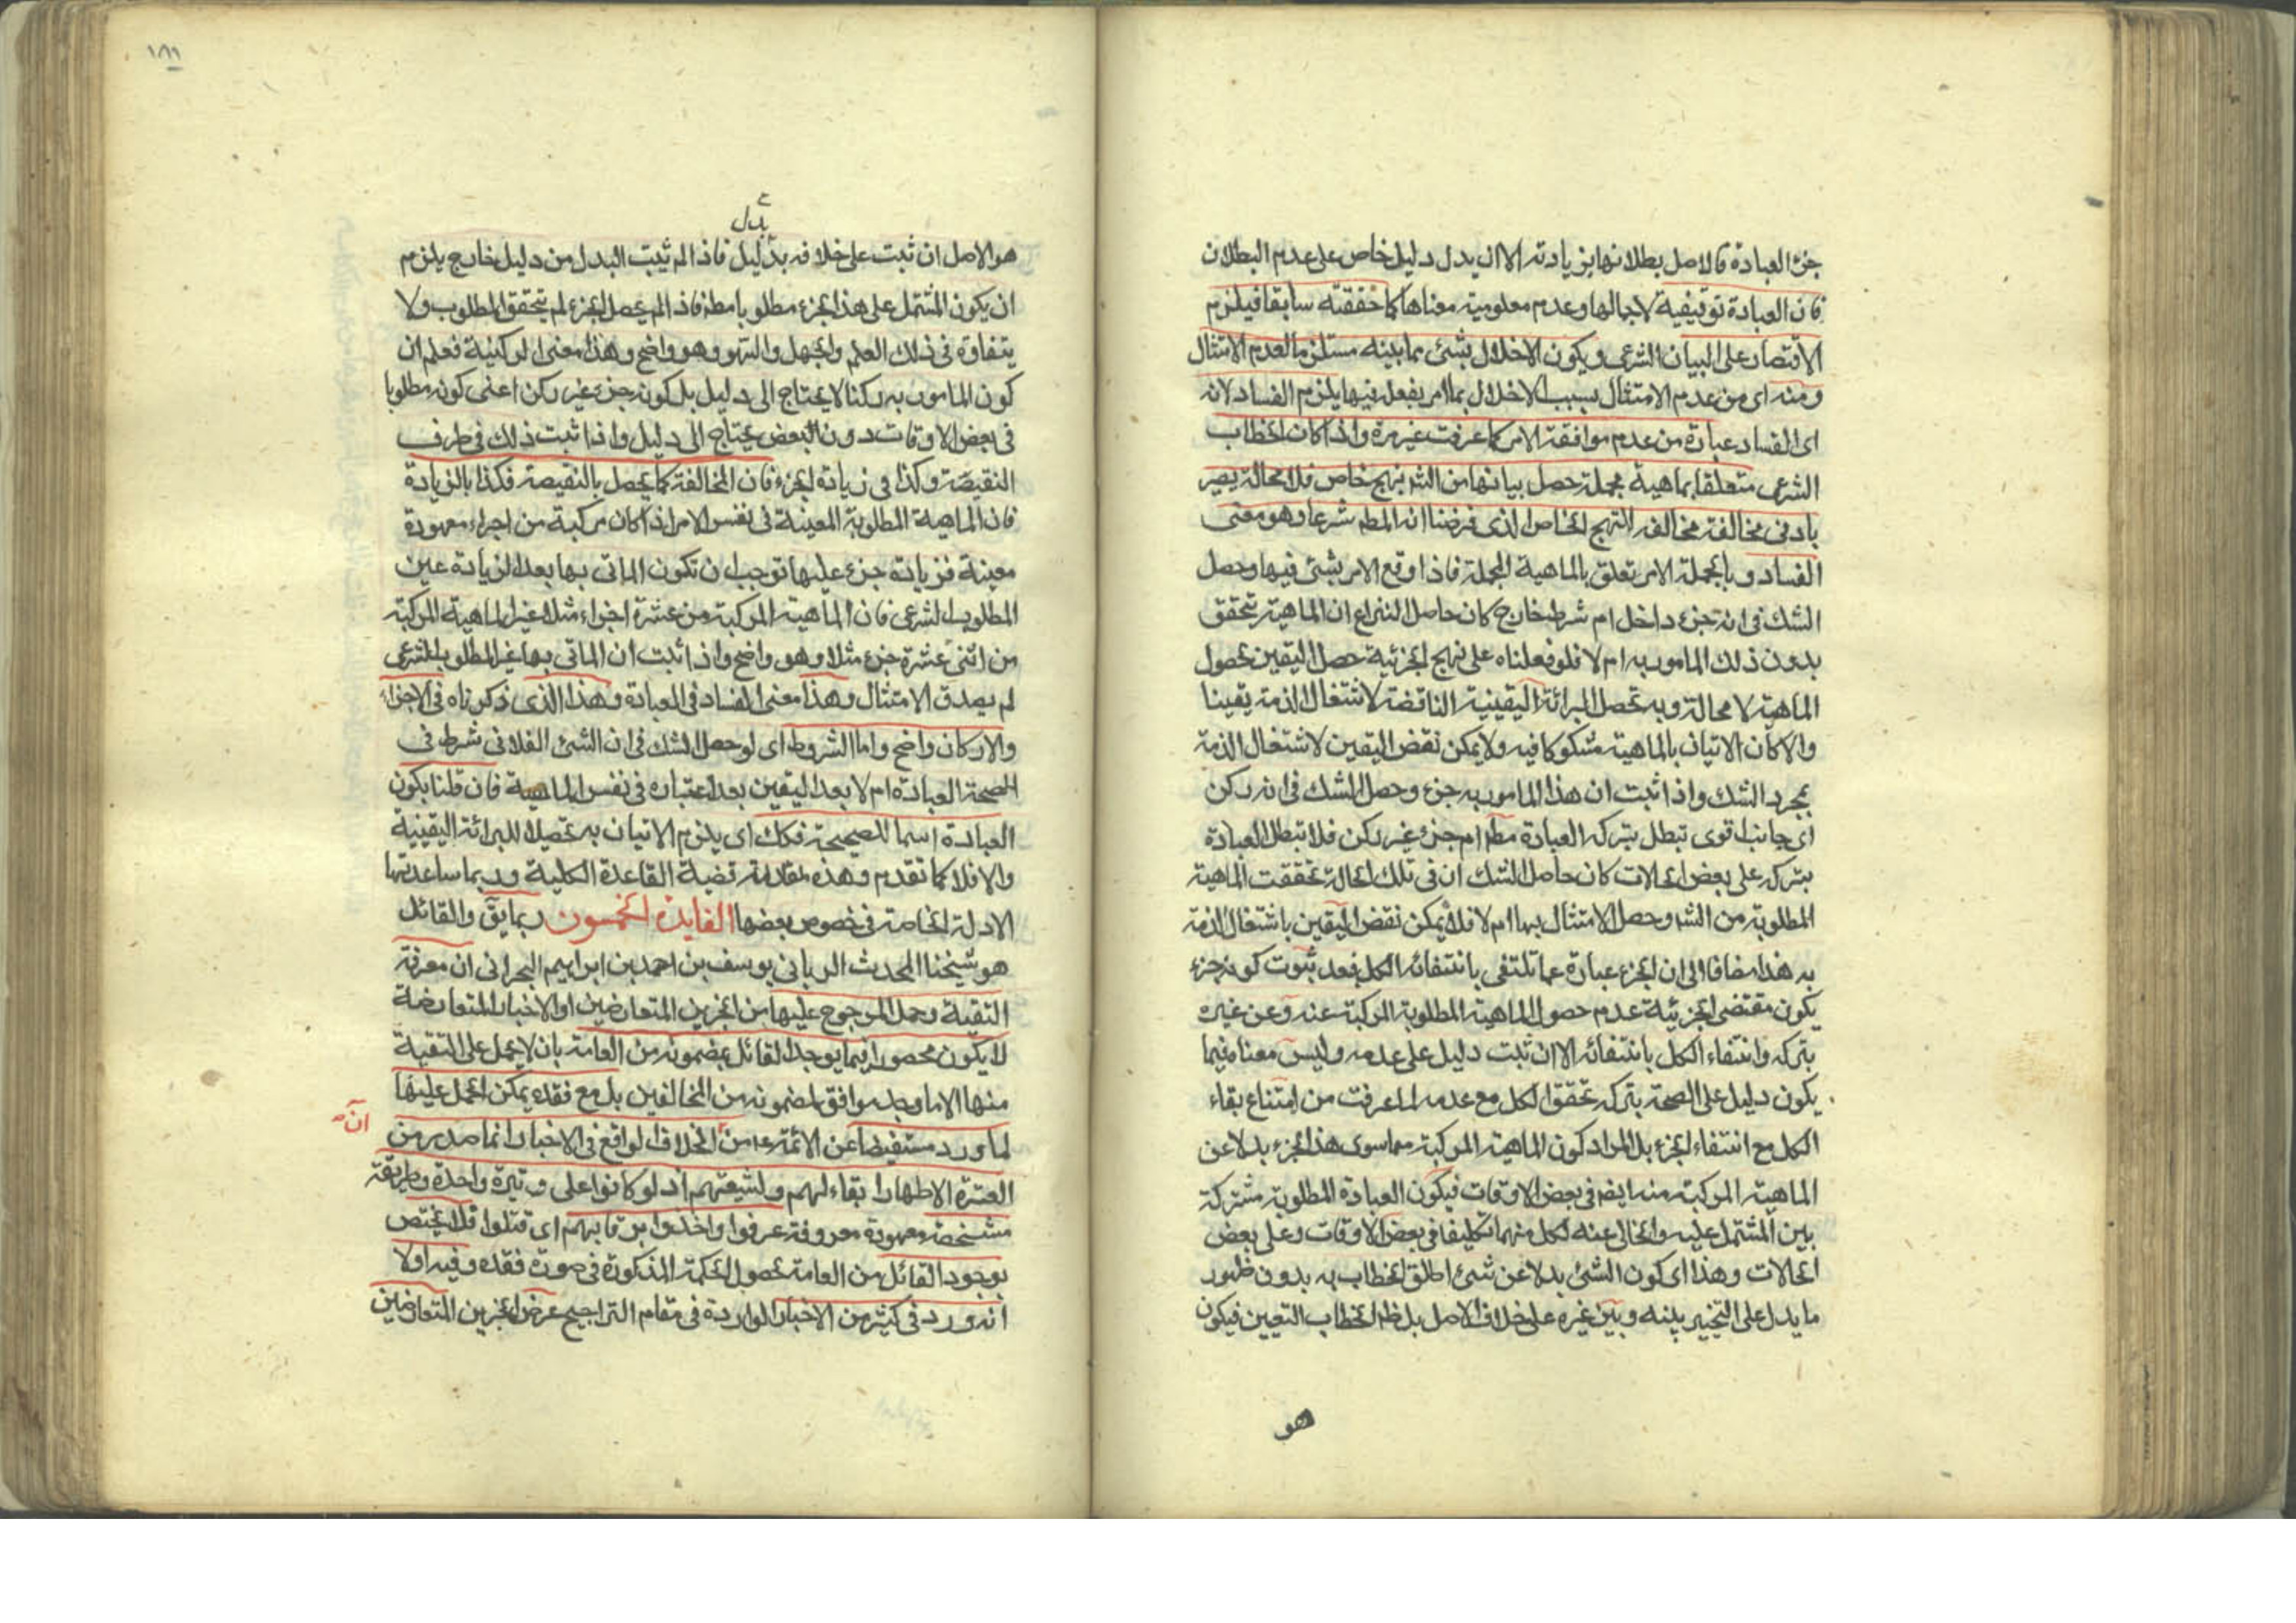 جزء العبادة فالاصل بطلانها بزيادته الا ان يدل دليل خاص على عدم البطلان
فان العبادة توقيفية لاجمالها وعدم معلومية معناها كما حققته سابقا فيلزم
الاقتصار على البيان الشرعى ويكون الاخلال بشئ مما بينه مستلزما لعدم الامتثال
ومنه اى من عدم الامتثال بسبب الاخلال بما امر بفعله فيها يلزم الفساد لانه
اى الفساد عبارة من عدم موافقة الامر كما عرفت غير مرة واذا كان الخطاب
الشرعى متعلقا بماهية مجملة حصل بيانها من الشر بنهج خاص فلا محالة يصير
بادنى مخالفة مخالفه النهج الخاص الذى فرضنا انه المط شرعا وهو معنى
الفساد وبالجملة الامر تعلق بالماهية المجملة فاذا وقع الامر بشئ فيها وحصل
الشك فى انه جزء داخل ام شرط خارج كان حاصل النزاع ان الماهية تحقق
بدون ذلك المامور به ام لا فلو فعلناه على نهج الجزئية حصل اليقين بحصول
الماهية لا محالة وبه تحصل البرائة اليقينية الناقضة لاشتغال الذمة يقينا
والا كان الاتيان بالماهية مشكوكا فيه ولا يمكن نقض اليقين لاشتغال الذمة
بمجرد الشك واذا ثبت ان هذا المامور به جزء وحصل الشك فى انه ركن
اى جانب اقوى تبطل بتركه العبادة مط ام جزء غير ركن فلا تبطل العبادة
بتركه على بعض الحالات كان حاصل الشك ان فى تلك الحالة تحققت الماهية
المطلوبة من الشر وحصل الامتثال بها ام لا فلا يمكن نقض اليقين باشتغال الذمة
به هذا مضافا الى ان الجزء عبارة عما تلتفى بانتفائه الكل فبعد ثبوت كونه جزء
يكون مقتضى الجزئية عدم حصول الماهية المطلوبة المركبة عنه وعن غيره
بتركه وانتفاء الكل بانتفائه الا ان ثبت دليل على عدمه وليس معناه فيما
يكون دليل على الصحة بتركه تحقق الكل مع عدمه لما عرفت من امتناع بقاء
الكل مع انتفاء الجزء بل المراد كون الماهية المركبة مما سوى هذا الجزء بدلا عن
الماهية المركبة منه ايضم فى بعض الاوقات فيكون العبادة المطلوبة مشتركة
بين المشتمل عليه والخالى عنه لكل منهما تكليفا فى بعض الاوقات وعلى بعض
الحالات وهذا اى كون الشئ بدلا عن شئ اطلق الخطاب به بدون ظهور
ما يدل على التخيير بينه وبين غيره على خلاف الاصل بل ظ الخطاب التعيين فيكون
هو
١٨١
بدل
هو الاصل ان ثبت على خلافه بدليل فاذا لم ثبت البدل من دليل خارج يلزم
ان يكون المشتمل على هذا الجزء مطلوبا مط فاذا لم يحصل الجزء لم يتحقق المطلوب ولا
يتفاوة فى ذلك العلم والجهل والسهو وهو واضح وهذا معنى الركنية فعلم ان
كون المامور به ركنا لا يحتاج الى دليل بل كونه جزء غير ركن اعنى كونه مطلوبا
فى بعض الاوقات دون البعض يحتاج الى دليل واذا ثبت ذلك فى طرف
النقيصة وكذا فى زيادة الجزء فان المخالفة كما يحصل بالنقيصة فكذا بالزيادة
فان الماهية المطلوبة المعينة فى نفس الامر اذا كان مركبة من اجزاء معهودة
معينة فزيادة جزء عليها توجب ان تكون الماتى بها بعد الزيادة غير
المطلوب الشرعى فان الماهية المركبة من عشرة اجزاء مثلا غير الماهية المركبة
من اثنى عشرة جزء مثلا وهو واضح واذا ثبت ان الماتى بها غير المطلوب الشرعى
لم يصدق الامتثال وهذا معنى الفساد فى العبادة وهذا الذى ذكرناه فى الاجزاء
والاركان واضح واما الشروط اى لو حصل الشك فى ان الشئ الفلانى شرط فى
الصحة العبادة ام لا بعد اليقين بعد اعتباره فى نفس الماهية فان قلنا بكون
العبادة اسما للصحيحة فكك اى يلزم الاتيان به تحصيلا للبرائة اليقينية
والا فلا كما تقدم وهذه المقدمة قضية القاعدة الكلية وربما ساعدتها
الادلة الخاصة فى خصوص بعضها الفايدة الخمسون ربما يق والقائل
هو شيخنا المحدث الربانى يوسف بن احمد بن ابراهيم البحرانى ان معرفة
التقية وحمل المرجوح عليها من الخبرين المتعارضين او الاخبار المتعارضة
لا يكون محصورا فيما يوجد القائل بمضمونه من العامة بان لا يحمل على التقية
منها الا ما وجد موافق لمضمونه من المخالفين بل مع فقده يمكن الحمل عليها
لما ورد مستفيضا عن الائمة ع من ان الخلاف الواقع فى الاخبار انما صدر من
العترة الاطهار ابقاء لهم ولشيعتهم اذ لو كانوا على وتيرة واحدة وطريقة
مشخصة معهودة معروفة عرفوا واخذوا برقابهم اى قتلوا فلا يختص
بوجود القائل من العامة لحصول الحكمة المذكورة فى صورة فقده وفيه اولا
انه ورد فى كثير من الاخبار الواردة فى مقام التراجيح عرض الخبرين المتعارضين